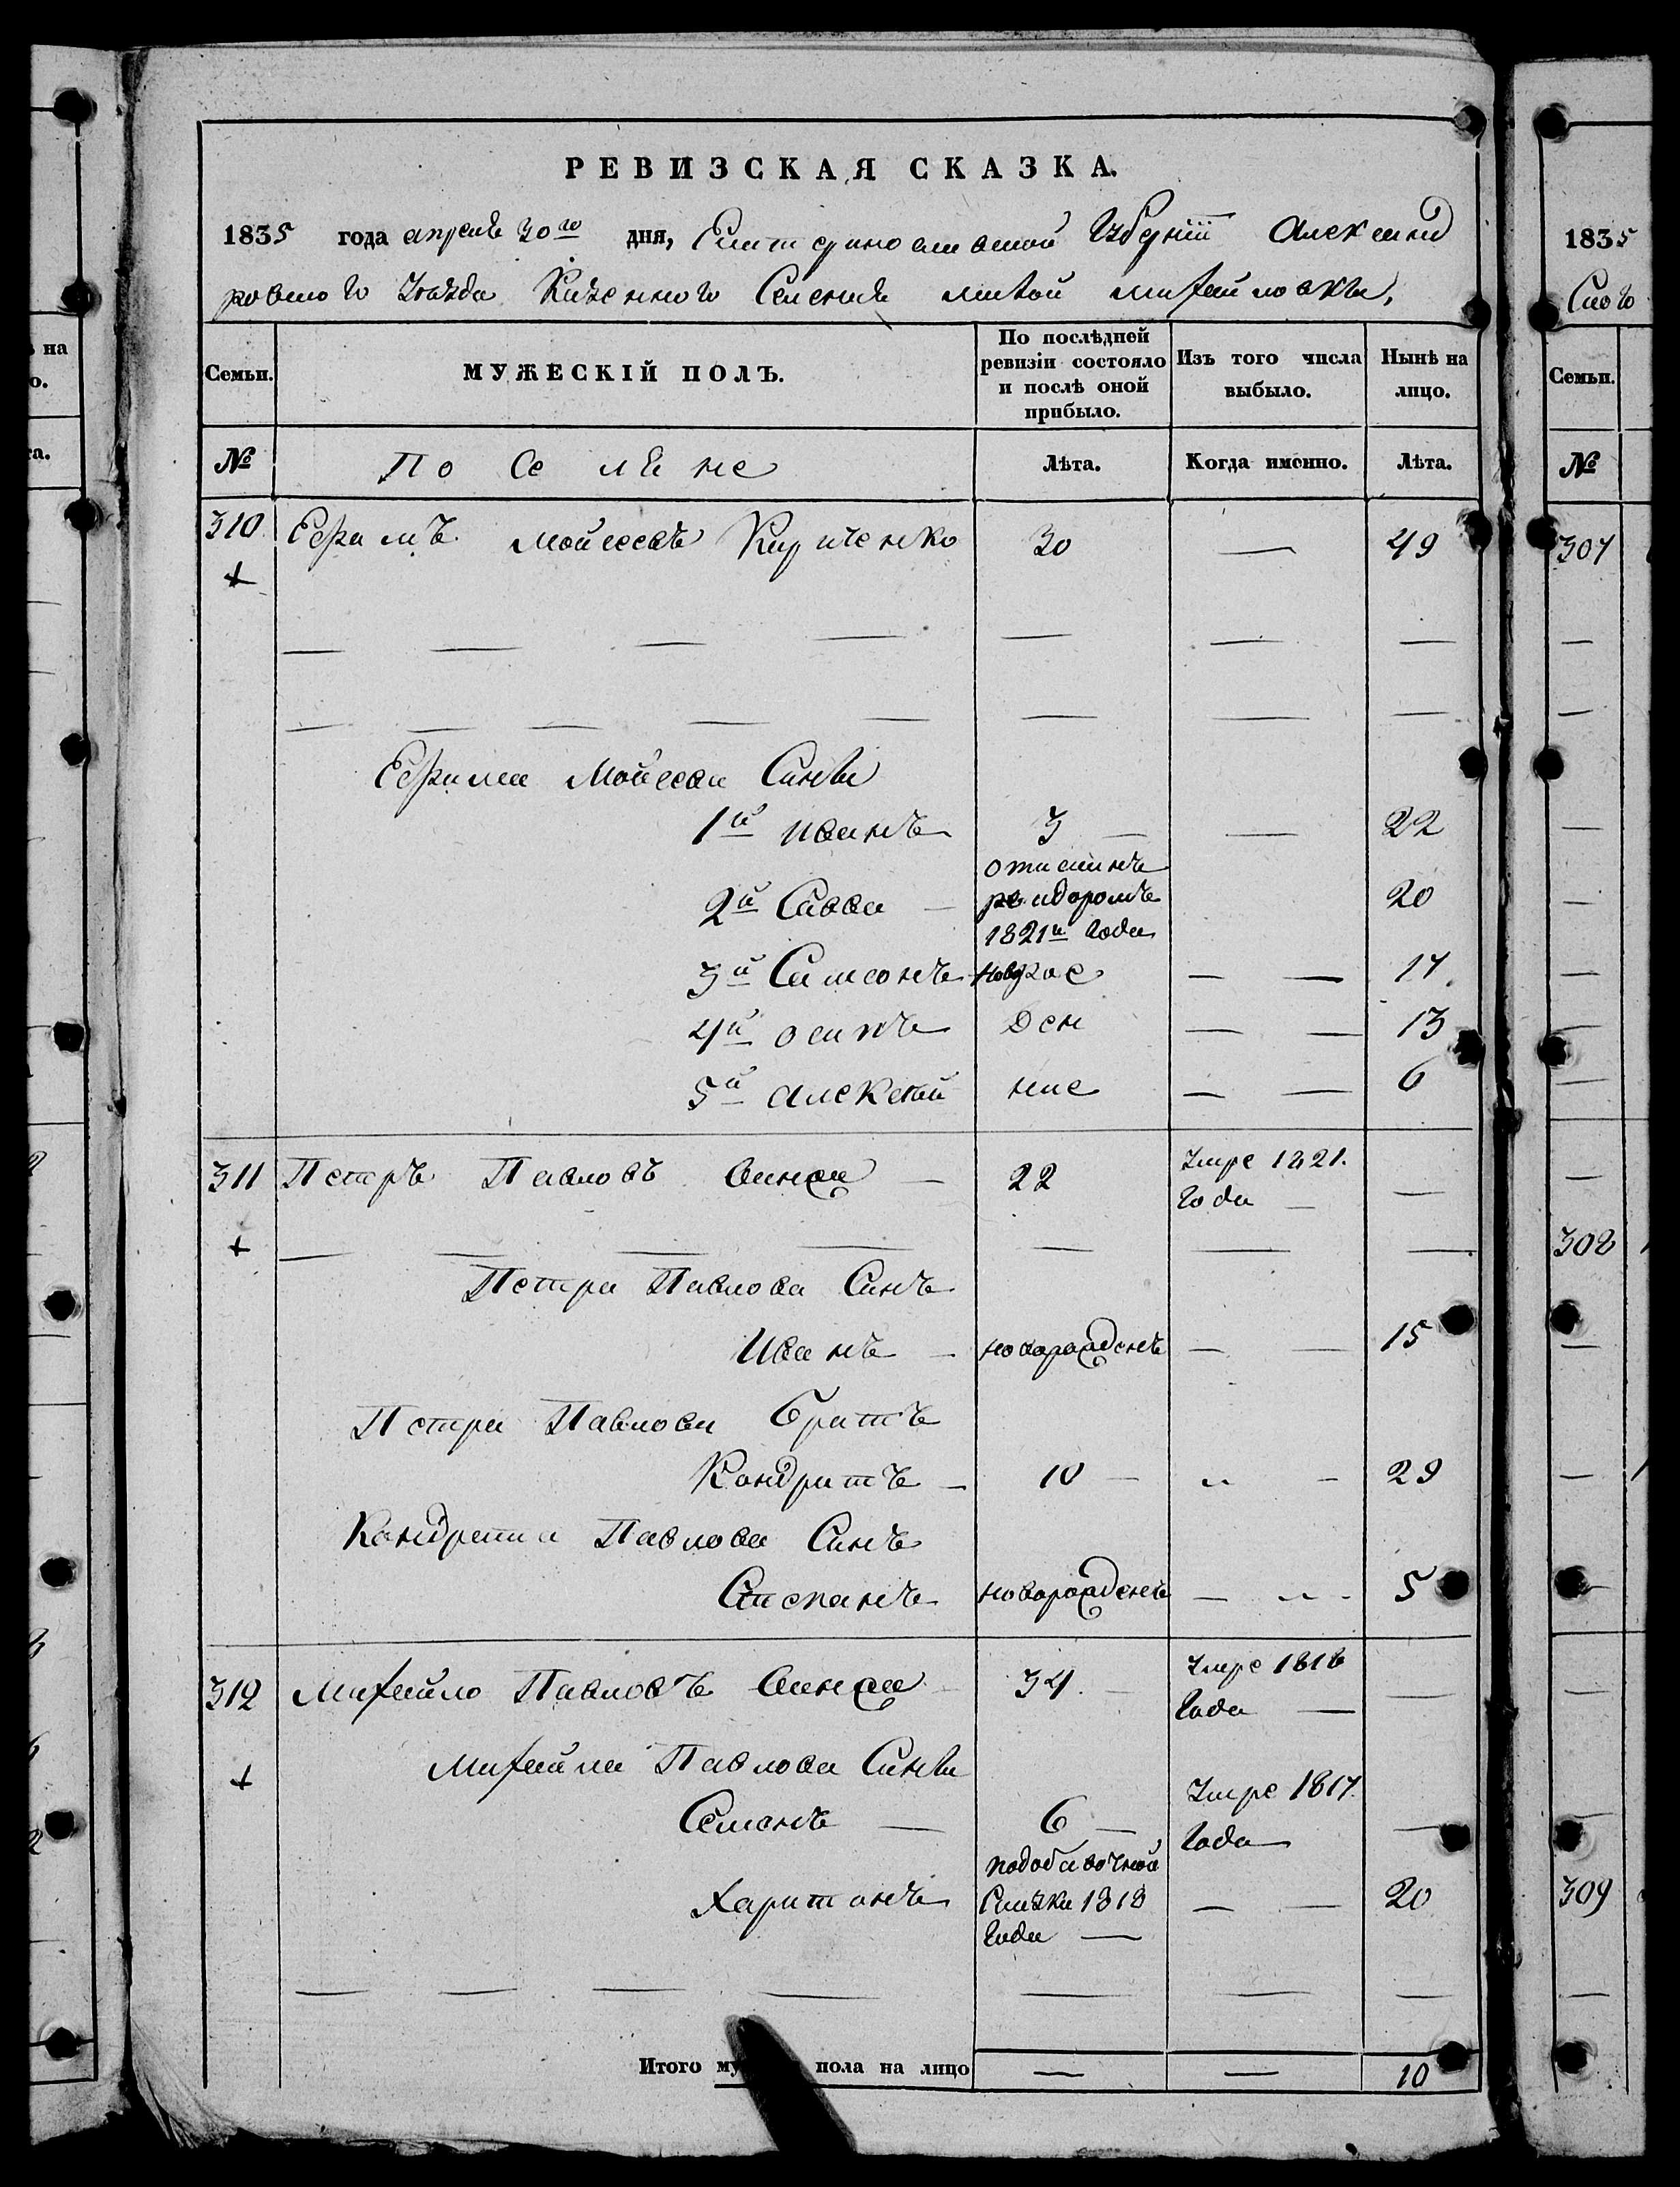 РЕВИЗСКАЯ СКАЗКА.
1835 года апреля 30го дня, Екатеринославской Губернiи Александ
ровского Уезда Казенного Селения Михайловки,
Семьи. МУЖЕСКІЙ ПОЛЪ. По послѣдней ревизіи состояло и послѣ оной прибыло. Изъ того числа выбыло. Нынѣ на лицо.
№ Поселяне Лѣта. Когда именно. Лѣта.
310 Ефимъ Мойсеевъ Кириченко 30 — 49
Ефима Мойсева Сины
1й Иванъ 3 — 22
2й Савва — 1821м года 20
3й Самсонъ новорож — — 17
4й осипъ ден — — 13
5й алексей ние — — 6
311 Петръ Павловъ — 22 Умре 1821. года — —
Петра Павлова Синъ
Иванъ — новорожденъ — — 15
Петра Павлова братъ
Кондратъ — 10 — 29
Кондрата Павлова Синъ
Степанъ новорожденъ — 5
312 Михайло Павловъ 34. — Умре 1818 года — —
Михайла Павлова Сины
Семенъ — 6 — Умре 1817. года —
Харитонъ подобавочной Сказки 1818 года — — — 20
Итого пола на лицо — — 10
1835
Семьи.
№
307
308
309
на